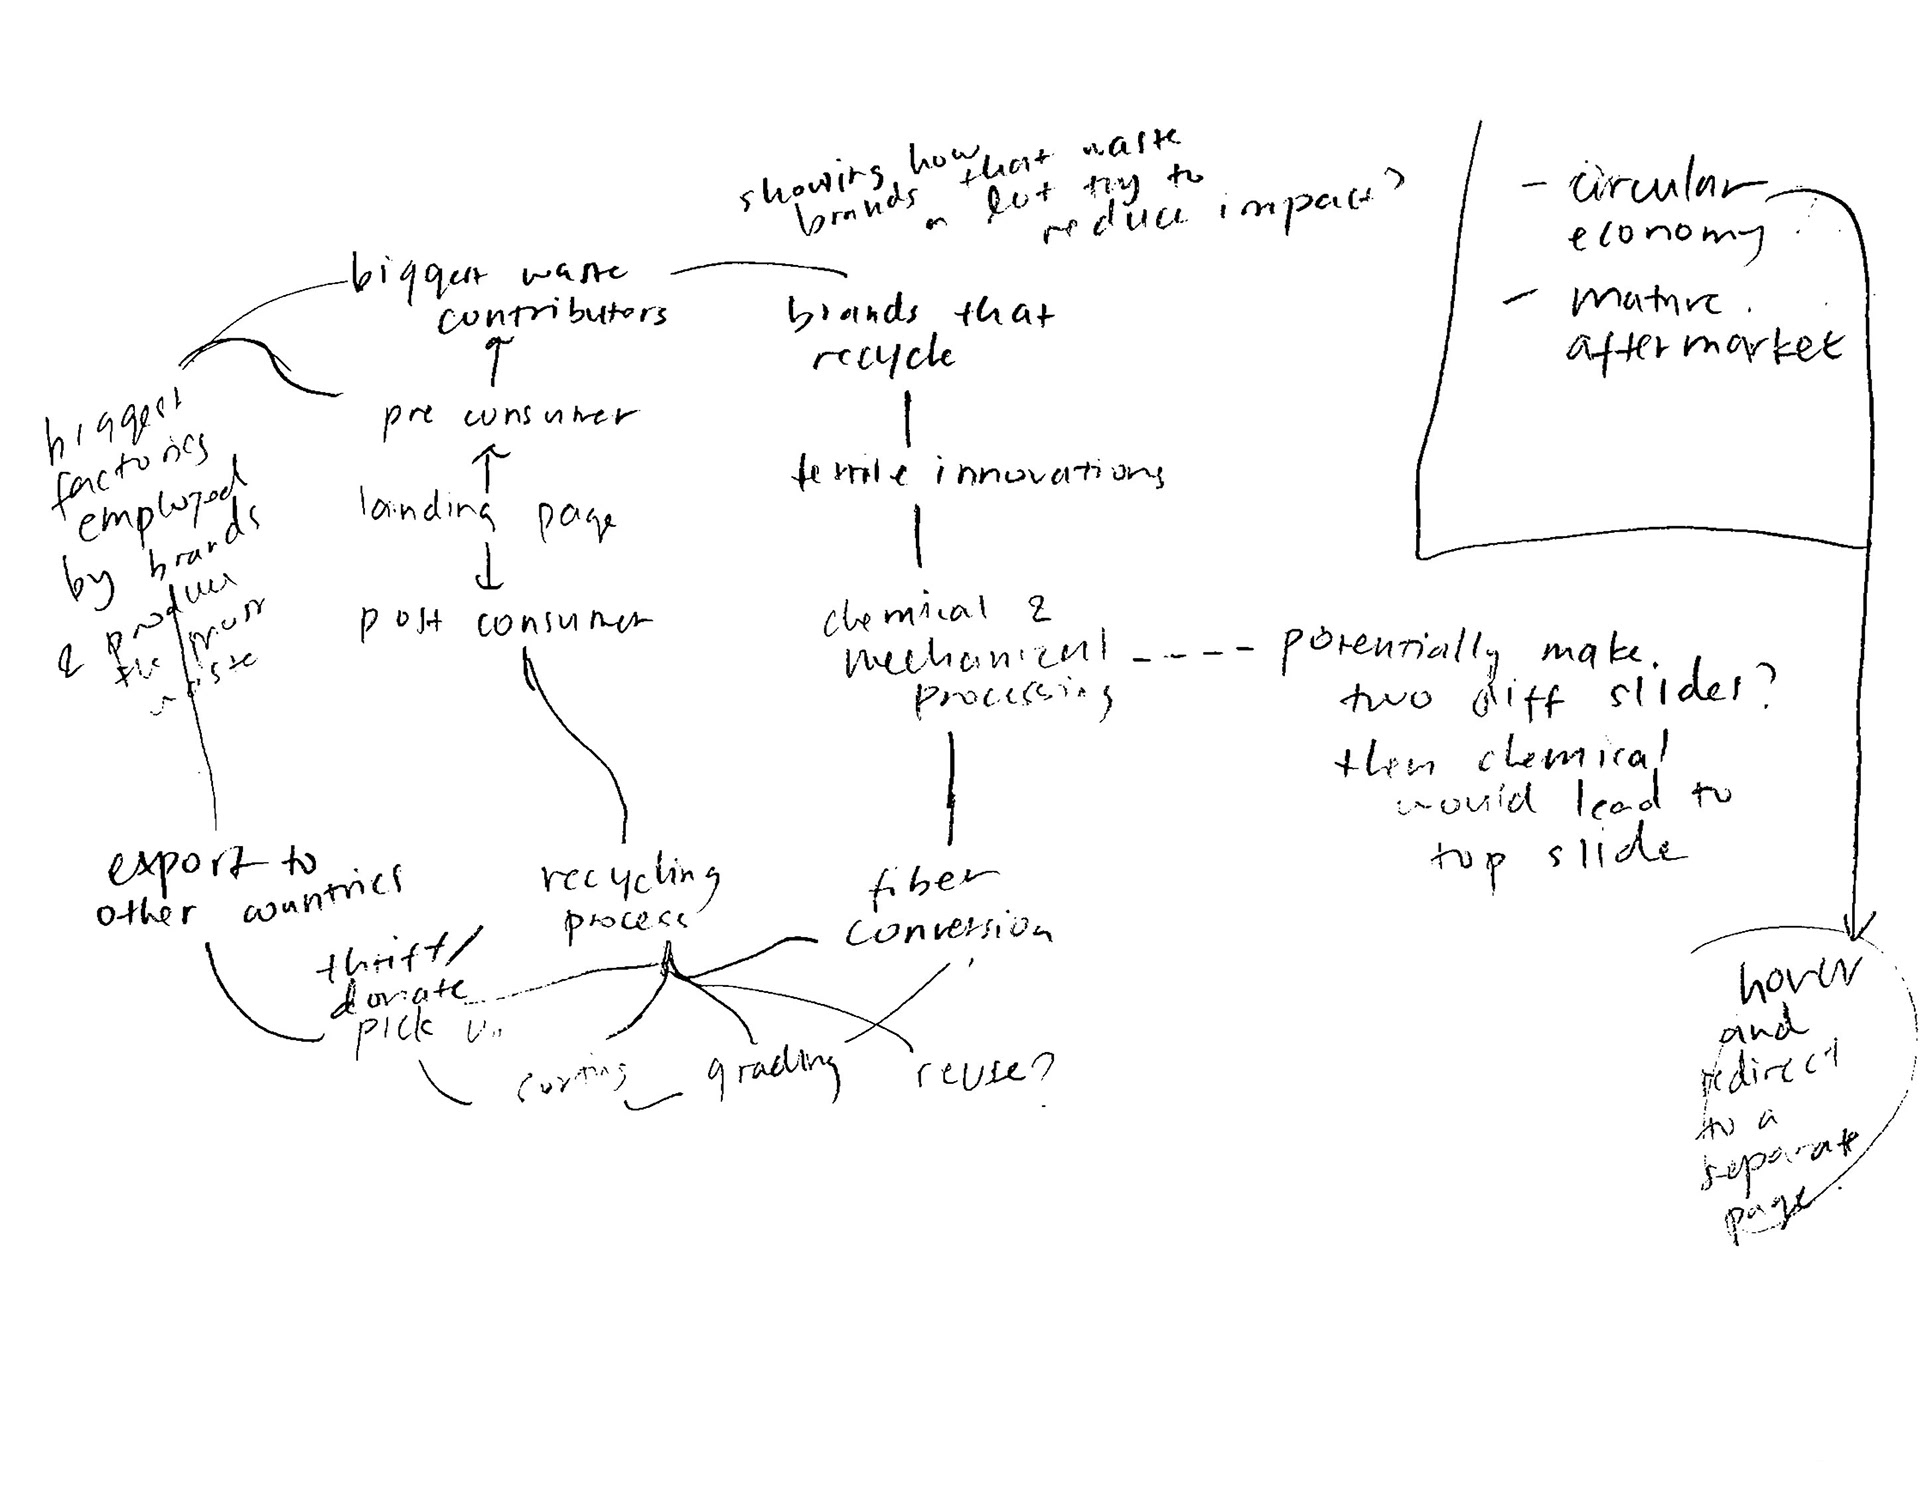 showing how
brands that waste
a lot try to
reduce impact?
biggest waste
contributors
brands that
recycle
pre consumer
landing page
post consumer
biggest
factories
employed
by brands
& produces
the most
waste
textile innovations
chemical &
mechanical
processing
potentially make
two diff slides?
then chemical
would lead to
top slide
export to
other countries
recycling
process
fiber
conversion
thrift/
donate
pick
grading
reuse?
- circular
economy
- mature
aftermarket
hover
and
redirect
to a
separate
page